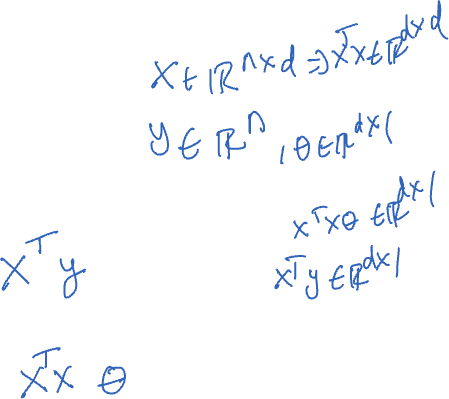 X ∈ ℝ^{n×d} ⇒ X^T X ∈ ℝ^{d×d}
y ∈ ℝ^n , θ ∈ ℝ^{d×1}
X^T X θ ∈ ℝ^{d×1}
X^T y
X^T y ∈ ℝ^{d×1}
X^T X θ